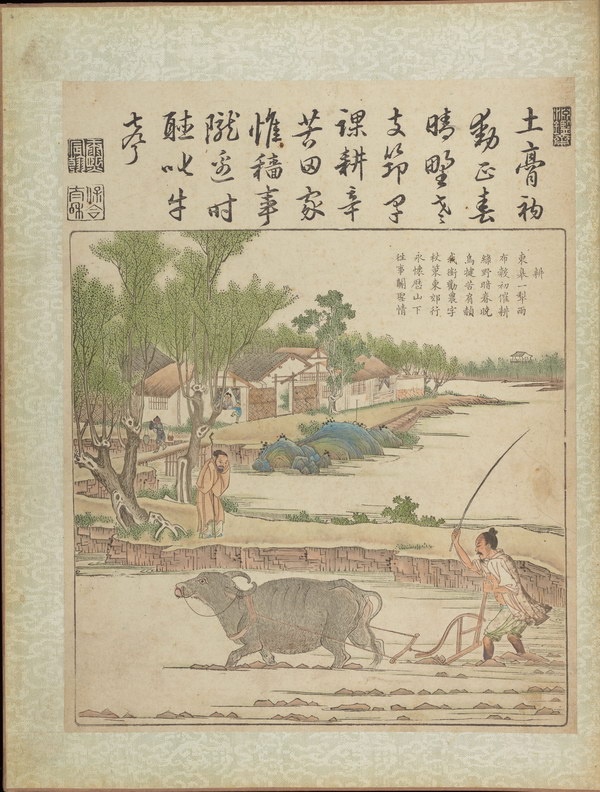 土膏初
動正春
晴野老
支筇早
課耕辛
苦田家
惟穡事
隴邊時
聽叱牛
聲
康熙宸翰
保合太和
耕
東皋一犁雨
布穀初催耕
綠野暗春曉
烏犍苦肩赬
我銜勸農字
杖策東郊行
永懷歷山下
往事關聖情